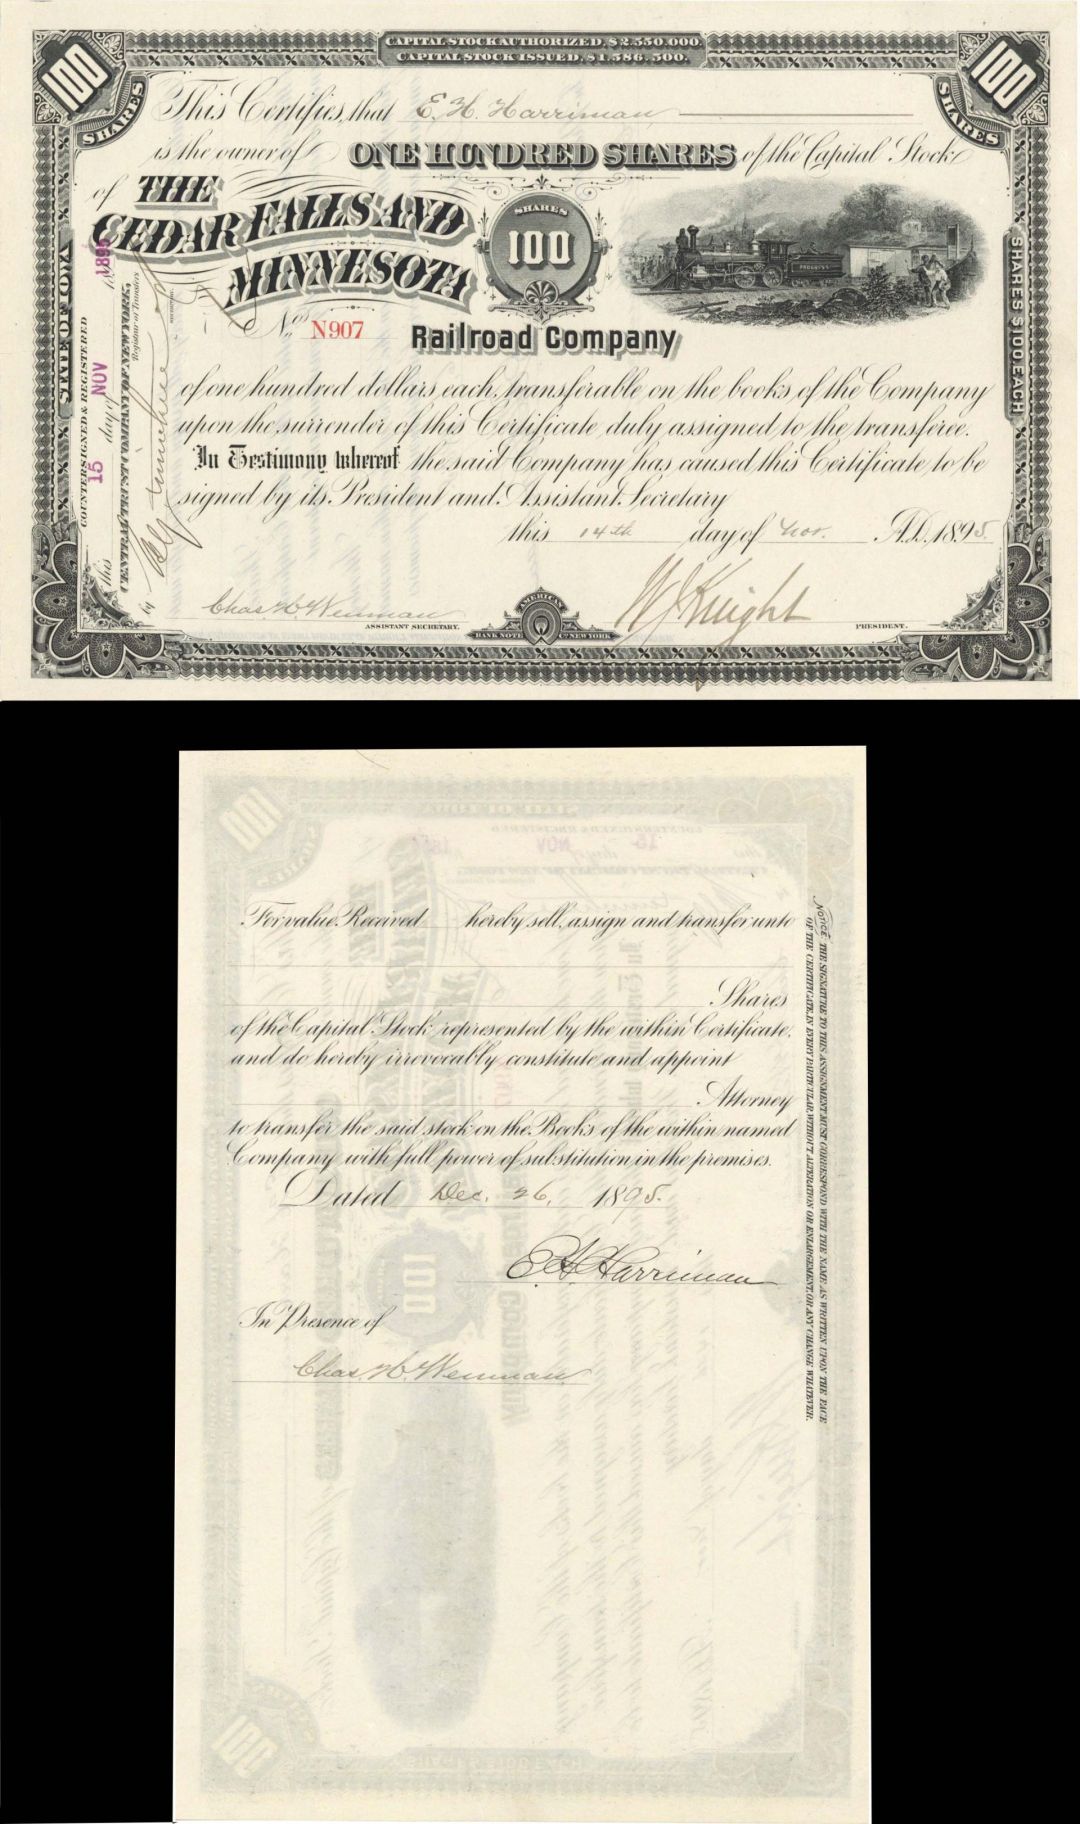 CAPITAL STOCK AUTHORIZED, $2,550,000.
CAPITAL STOCK ISSUED, $1,586,500.
100
SHARES
100
SHARES
This Certifies, that E. H. Harriman
is the owner of ONE HUNDRED SHARES of the Capital Stock
of THE
CEDAR FALLS AND
MINNESOTA
SHARES
100
PROGRESS
Nos. N907
Railroad Company
of one hundred dollars each, transferable on the books of the Company
upon the surrender of this Certificate duly assigned to the transferee.
In Testimony whereof the said Company has caused this Certificate, to be
signed by its President and Assistant Secretary
this 14th day of Nov. A.D. 1895.
Chas. W. Wenman
ASSISTANT SECRETARY.
W J Knight
PRESIDENT.
AMERICAN
BANK NOTE Co. NEW YORK
STATE OF IOWA
COUNTERSIGNED & REGISTERED
this 15 day of NOV 1895
CENTRAL TRUST COMPANY OF NEW YORK,
Registrar of Transfers
by
SECRETARY.
SHARES $100 EACH
For value Received hereby sell, assign and transfer unto
Shares
of the Capital Stock represented by the within Certificate,
and do hereby irrevocably constitute and appoint
Attorney
to transfer the said stock on the Books of the within named
Company with full power of substitution in the premises.
Dated Dec. 26, 1895.
E H Harriman
In Presence of
Chas. W. Wenman
NOTICE. THE SIGNATURE TO THIS ASSIGNMENT MUST CORRESPOND WITH THE NAME AS WRITTEN UPON THE FACE
OF THE CERTIFICATE, IN EVERY PARTICULAR, WITHOUT ALTERATION OR ENLARGEMENT, OR ANY CHANGE WHATEVER.